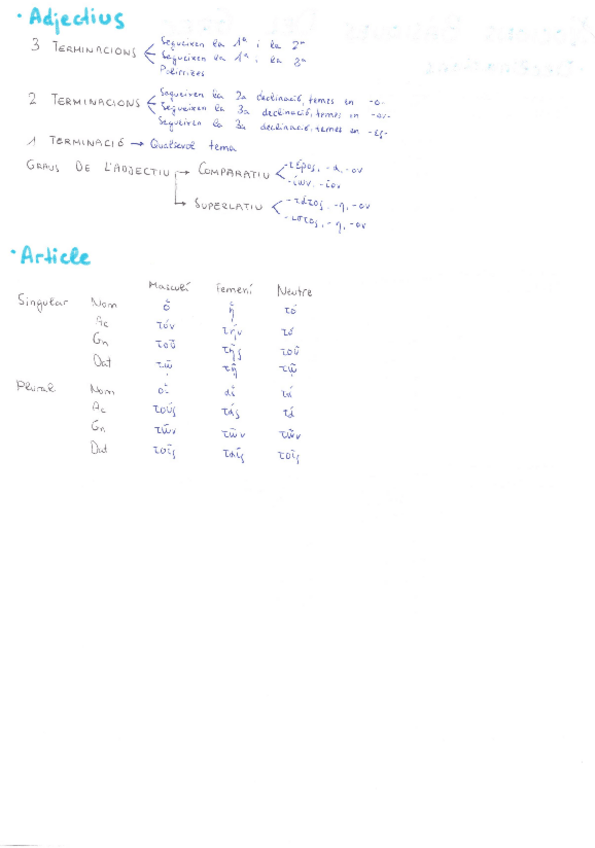 · Adjectius
3 TERMINACIONS Segueixen la 1ª i la 2ª
Segueixen la 1ª i la 3ª
Polirrizes
2 TERMINACIONS Segueixen la 2a declinació, temes en -o-
Segueixen la 3a declinació, temes en -ον-
Segueixen la 3a declinació, temes en -ες-
1 TERMINACIÓ → Qualsevol tema
GRAUS DE L'ADJECTIU → COMPARATIU -τέρος, -α, -ον
-ίων, -ιον
→ SUPERLATIU -τάτος, -η, -ον
-ιστος, -η, -ον
· Article
Masculí Femení Neutre
Singular Nom ὁ ἡ τό
Ac τόν τήν τό
Gn τοῦ τῆς τοῦ
Dat τῷ τῇ τῷ
Plural Nom οἱ αἱ τά
Ac τούς τάς τά
Gn τῶν τῶν τῶν
Dat τοῖς ταῖς τοῖς